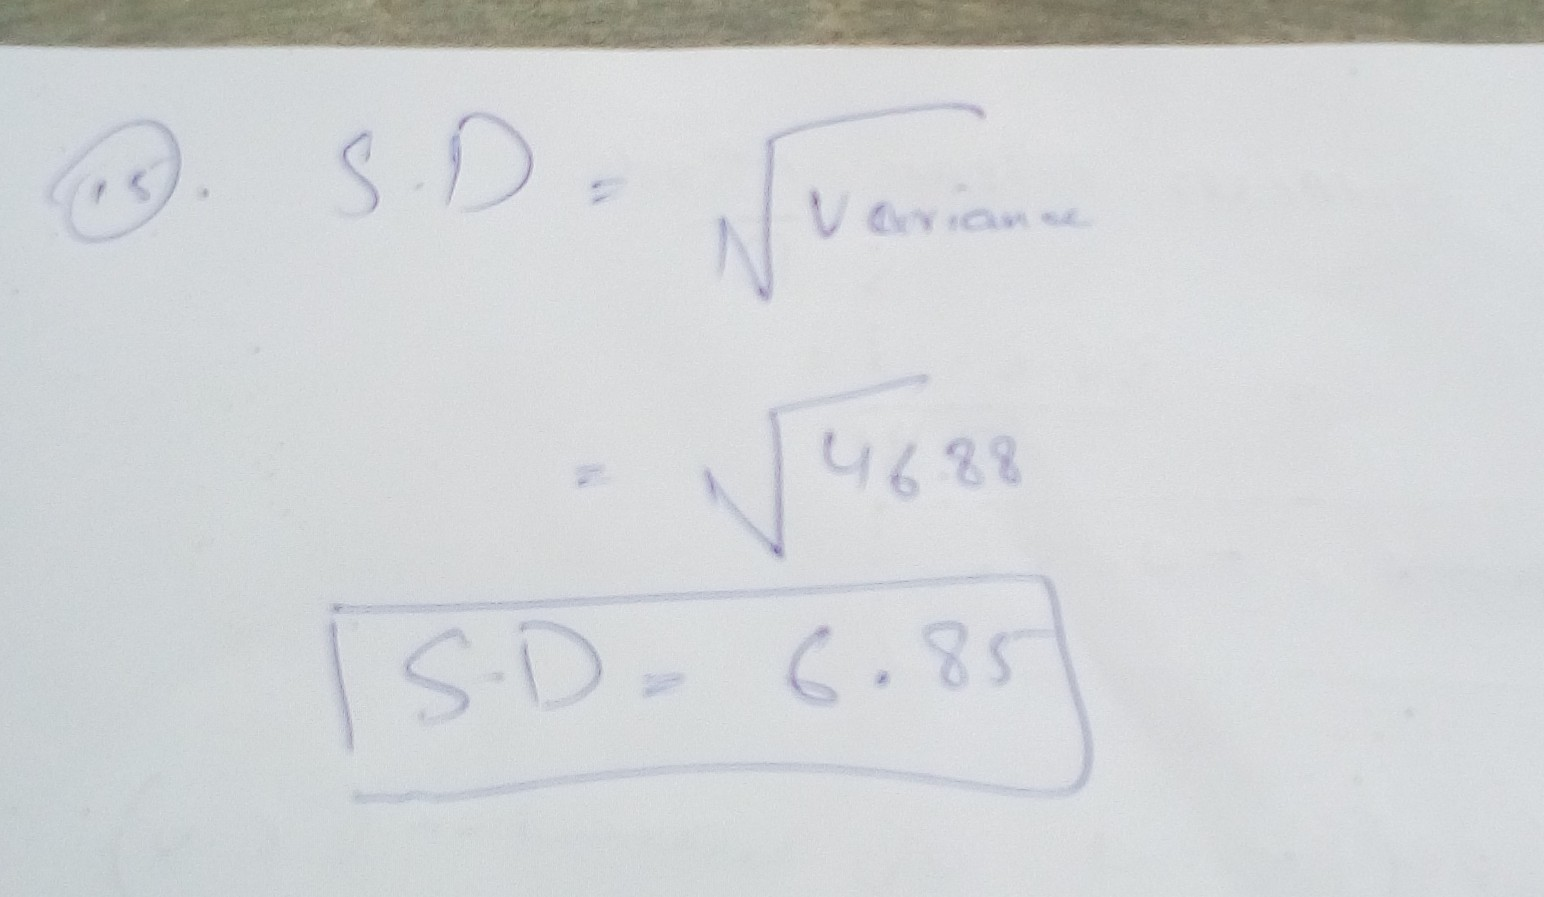 15. S.D = √Variance
= √46.88
S.D = 6.85